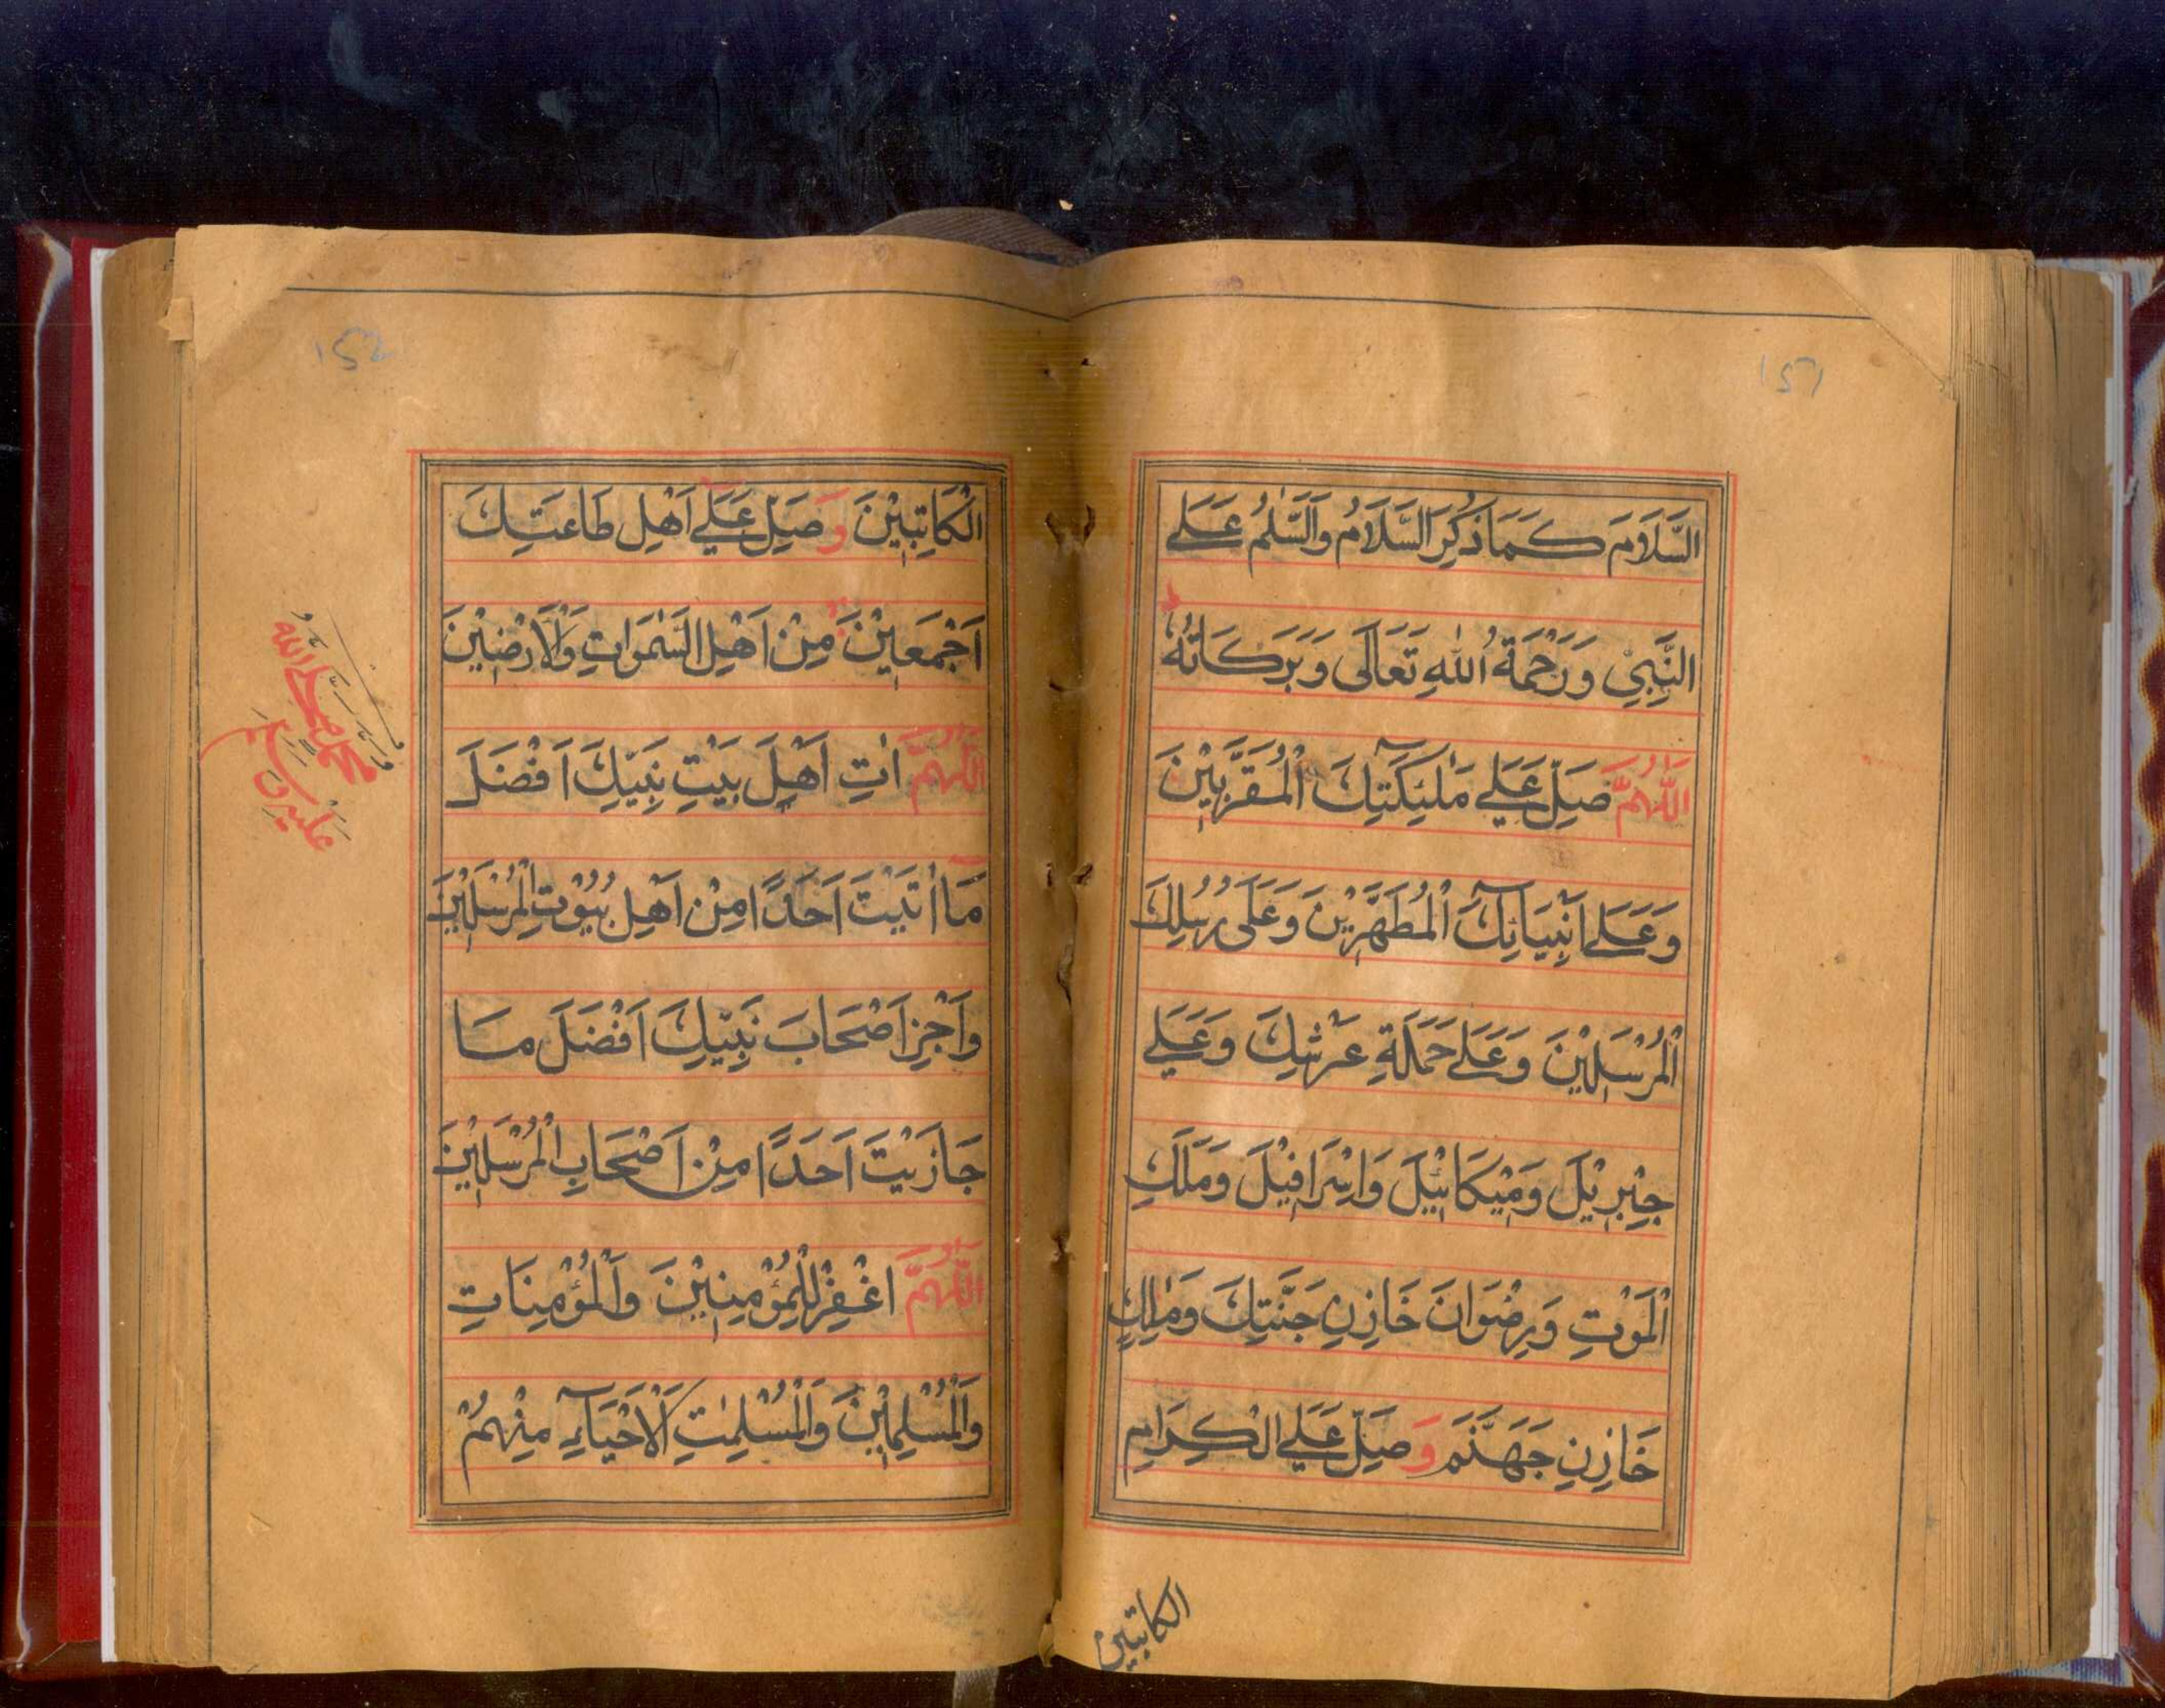 151
السَّلَامَ كَمَا ذُكِرَ السَّلَامُ وَالسَّلٰمُ عَلَے
النَّبِيِّ وَرَحْمَةُ اللّٰهِ تَعَالَى وَبَرَكَاتُهٗ ط
اَللّٰهُمَّ صَلِّ عَلَے مَلٰئِكَتِكَ الْمُقَرَّبِيْنَ
وَعَلَے اَنْبِيَآئِكَ الْمُطَهَّرِيْنَ وَعَلَى رُسُلِكَ
الْمُرْسَلِيْنَ وَعَلَے حَمَلَةِ عَرْشِكَ وَعَلَے
جِبْرِيْلَ وَمِيْكَائِيْلَ وَاِسْرَافِيْلَ وَمَلَكِ
الْمَوْتِ وَرِضْوَانَ خَازِنِ جَنَّتِكَ وَمَالِكٍ
خَازِنِ جَهَنَّمَ وَصَلِّ عَلَے الْكِرَامِ
الكاتبين
152
الْكَاتِبِيْنَ وَصَلِّ عَلَے اَهْلِ طَاعَتِكَ
اَجْمَعِيْنَ مِنْ اَهْلِ السَّمٰوَاتِ وَالْاَرَضِيْنَ
اَللّٰهُمَّ اٰتِ اَهْلَ بَيْتِ نَبِيِّكَ اَفْضَلَ
مَا اٰتَيْتَ اَحَدًا مِنْ اَهْلِ بُيُوْتِ الْمُرْسَلِيْنَ
وَاَجْزِ اَصْحَابَ نَبِيِّكَ اَفْضَلَ مَا
جَازَيْتَ اَحَدًا مِنْ اَصْحَابِ الْمُرْسَلِيْنَ
اَللّٰهُمَّ اغْفِرْ لِلْمُؤْمِنِيْنَ وَالْمُؤْمِنَاتِ
وَالْمُسْلِمِيْنَ وَالْمُسْلِمٰتِ اَلْاَحْيَآءِ مِنْهُمْ
محمد صلى الله
عليه وسلم